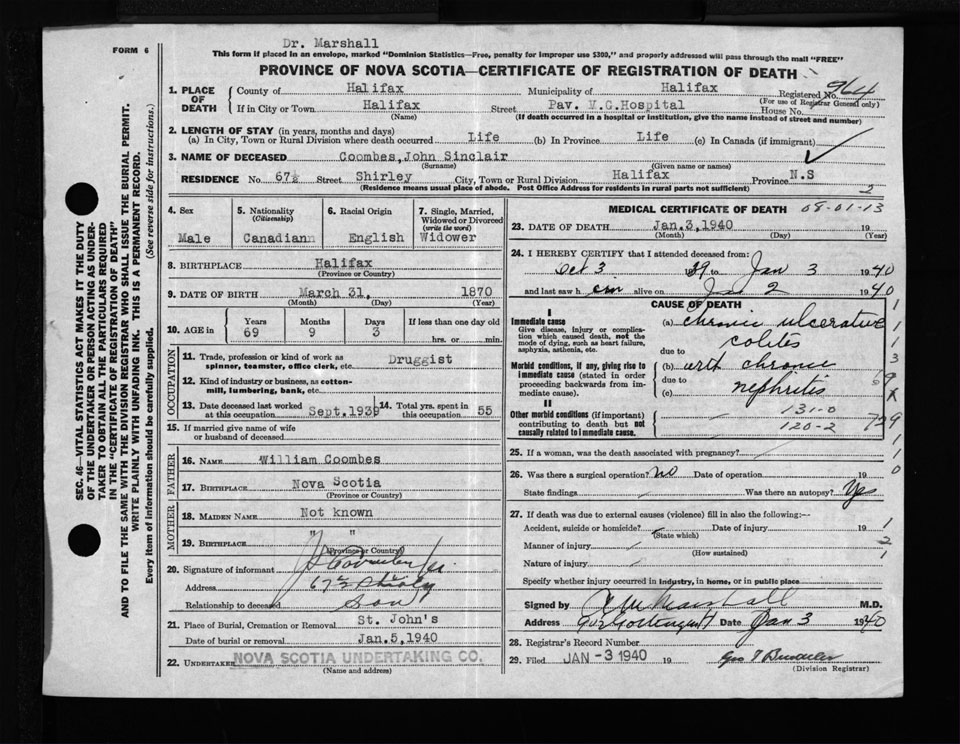 Dr. Marshall
FORM 6
This form if placed in an envelope, marked "Dominion Statistics—Free, penalty for improper use $300," and properly addressed will pass through the mail "FREE"
PROVINCE OF NOVA SCOTIA—CERTIFICATE OF REGISTRATION OF DEATH
1. PLACE OF DEATH
County of Halifax Municipality of Halifax Registered No. 964
(For use of Registrar General only)
If in City or Town Halifax Street Pav. V.G.Hospital House No.
(Name) (If death occurred in a hospital or institution, give the name instead of street and number)
2. LENGTH OF STAY (in years, months and days)
(a) In City, Town or Rural Division where death occurred Life (b) In Province Life (c) In Canada (if immigrant)
3. NAME OF DECEASED Coombes, John Sinclair
(Surname) (Given name or names)
RESIDENCE No. 67½ Street Shirley City, Town or Rural Division Halifax Province N.S
(Residence means usual place of abode. Post Office Address for residents in rural parts not sufficient) 2
SEC. 46—VITAL STATISTICS ACT MAKES IT THE DUTY
OF THE UNDERTAKER OR PERSON ACTING AS UNDER-
TAKER TO OBTAIN ALL THE PARTICULARS REQUIRED
IN THE "CERTIFICATE OF REGISTRATION OF DEATH"
AND TO FILE THE SAME WITH THE DIVISION REGISTRAR WHO SHALL ISSUE THE BURIAL PERMIT.
WRITE PLAINLY WITH UNFADING INK. THIS IS A PERMANENT RECORD.
Every item of information should be carefully supplied. (See reverse side for instructions.)
4. Sex
Male
5. Nationality
(Citizenship)
Canadiann
6. Racial Origin
English
7. Single, Married,
Widowed or Divorced
(write the word)
Widower
8. BIRTHPLACE Halifax
(Province or Country)
9. DATE OF BIRTH March 31, 1870
(Month) (Day) (Year)
10. AGE in
Years Months Days If less than one day old
69 9 3 hrs. or min.
OCCUPATION
11. Trade, profession or kind of work as
spinner, teamster, office clerk, etc. Druggist
12. Kind of industry or business, as cotton-
mill, lumbering, bank, etc.
13. Date deceased last worked
at this occupation Sept.1939
14. Total yrs. spent in
this occupation 55
15. If married give name of wife
or husband of deceased
FATHER
16. NAME William Coombes
17. BIRTHPLACE Nova Scotia
(Province or Country)
MOTHER
18. MAIDEN NAME Not known
19. BIRTHPLACE " "
(Province or Country)
20. Signature of informant
Address 67½ Shirley
Relationship to deceased Son
21. Place of Burial, Cremation or Removal St. John's
Date of burial or removal Jan.5,1940
22. UNDERTAKER NOVA SCOTIA UNDERTAKING CO.
(Name and address)
MEDICAL CERTIFICATE OF DEATH 08-01-13
23. DATE OF DEATH Jan.3,1940 19
(Month) (Day)
24. I HEREBY CERTIFY that I attended deceased from:
Oct 3 1939 to Jan 3 1940
and last saw h im alive on Jan 2 1940
CAUSE OF DEATH
I
Immediate cause
Give disease, injury or complica-
tion which caused death, not the
mode of dying, such as heart failure,
asphyxia, asthenia, etc.
(a) Chronic ulcerative
colitis
due to
Morbid conditions, if any, giving rise to
immediate cause (stated in order
proceeding backwards from im-
mediate cause).
(b) with chronic
due to
(c) nephritis
II
Other morbid conditions (if important)
contributing to death but not
causally related to immediate cause.
131-0
120-2
25. If a woman, was the death associated with pregnancy?
26. Was there a surgical operation? No Date of operation 19
State findings Was there an autopsy? Yes
27. If death was due to external causes (violence) fill in also the following:—
Accident, suicide or homicide? Date of injury 19
(State which)
Manner of injury
(How sustained)
Nature of injury
Specify whether injury occurred in industry, in home, or in public place
Signed by Marshall M.D.
Address Date Jan 3 1940
28. Registrar's Record Number
29. Filed JAN -3 1940 19
(Division Registrar)